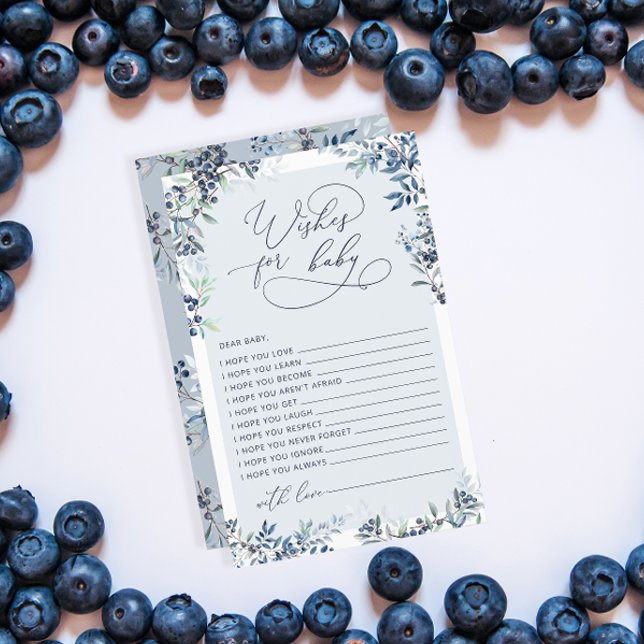 Wishes
for baby
DEAR BABY,
I HOPE YOU LOVE
I HOPE YOU LEARN
I HOPE YOU BECOME
I HOPE YOU AREN'T AFRAID
I HOPE YOU GET
I HOPE YOU LAUGH
I HOPE YOU RESPECT
I HOPE YOU NEVER FORGET
I HOPE YOU IGNORE
I HOPE YOU ALWAYS
with love